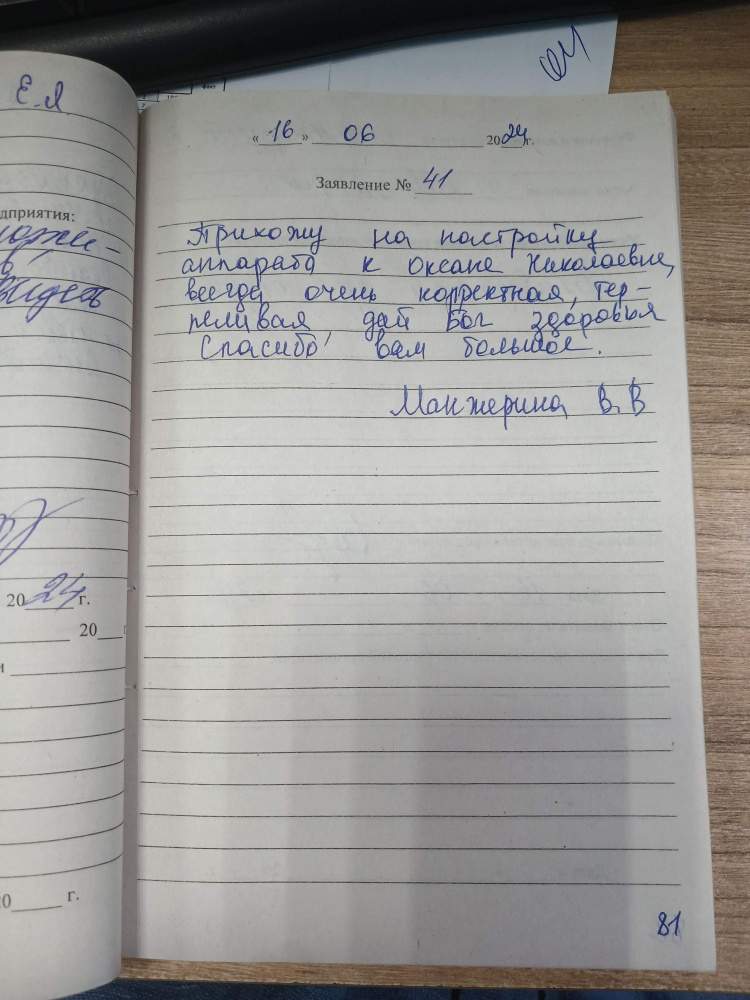 Е.Я
едприятия:
20 24 г.
20 г
20 г.
«16» 06 2024г.
Заявление № 41
Прихожу на настройку
аппарата к Оксане Николаевне,
всегда очень корректная, тер-
пеливая, дай Бог здоровья
Спасибо вам большое.
Манжерина В. В
81